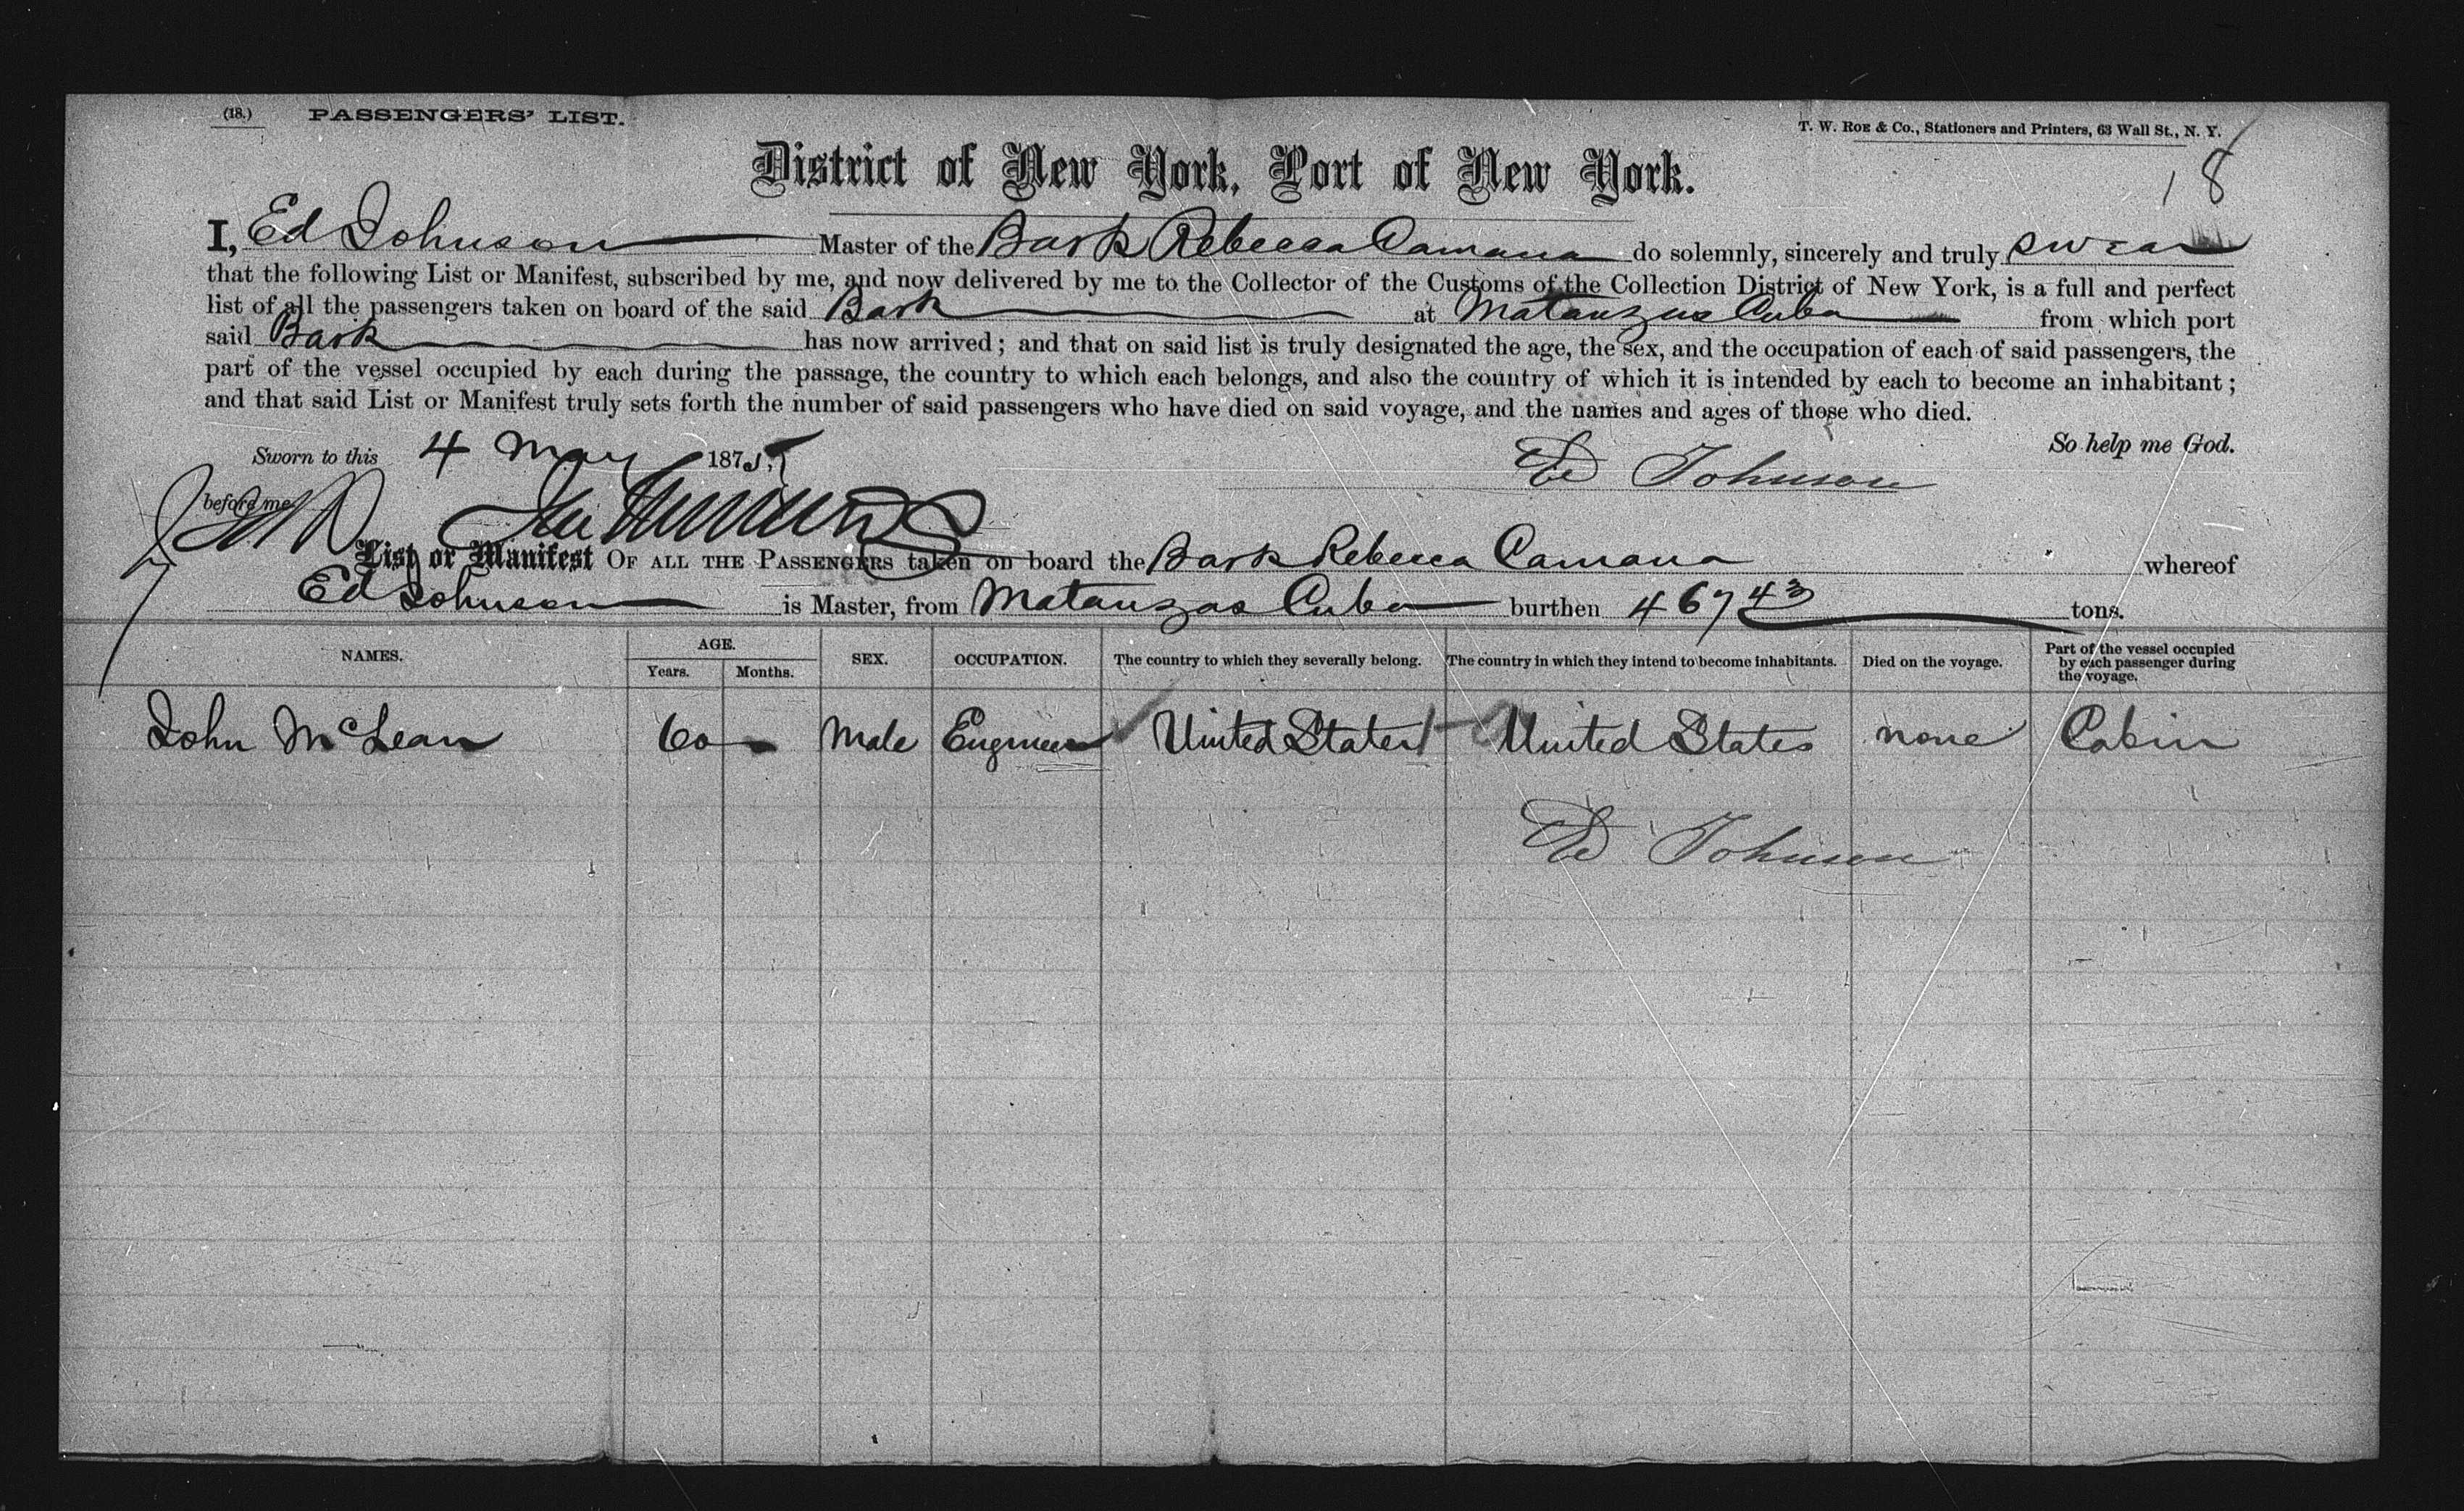 (18.) PASSENGERS' LIST.
T. W. ROE & Co., Stationers and Printers, 63 Wall St., N. Y.
District of New York, Port of New York.
18
I, Ed Johnson Master of the Bark Rebecca Camana do solemnly, sincerely and truly swear
that the following List or Manifest, subscribed by me, and now delivered by me to the Collector of the Customs of the Collection District of New York, is a full and perfect
list of all the passengers taken on board of the said Bark at Matanzas Cuba from which port
said Bark has now arrived; and that on said list is truly designated the age, the sex, and the occupation of each of said passengers, the
part of the vessel occupied by each during the passage, the country to which each belongs, and also the country of which it is intended by each to become an inhabitant;
and that said List or Manifest truly sets forth the number of said passengers who have died on said voyage, and the names and ages of those who died.
So help me God.
Sworn to this 4 May 1875,
Ed Johnson
before me
List or Manifest OF ALL THE PASSENGERS taken on board the Bark Rebecca Camana whereof
Ed Johnson is Master, from Matanzas Cuba burthen 467 43 tons.
NAMES. AGE. Years. Months. SEX. OCCUPATION. The country to which they severally belong. The country in which they intend to become inhabitants. Died on the voyage. Part of the vessel occupied by each passenger during the voyage.
John McLean 60 - Male Engineer United States United States none Cabin
Ed Johnson